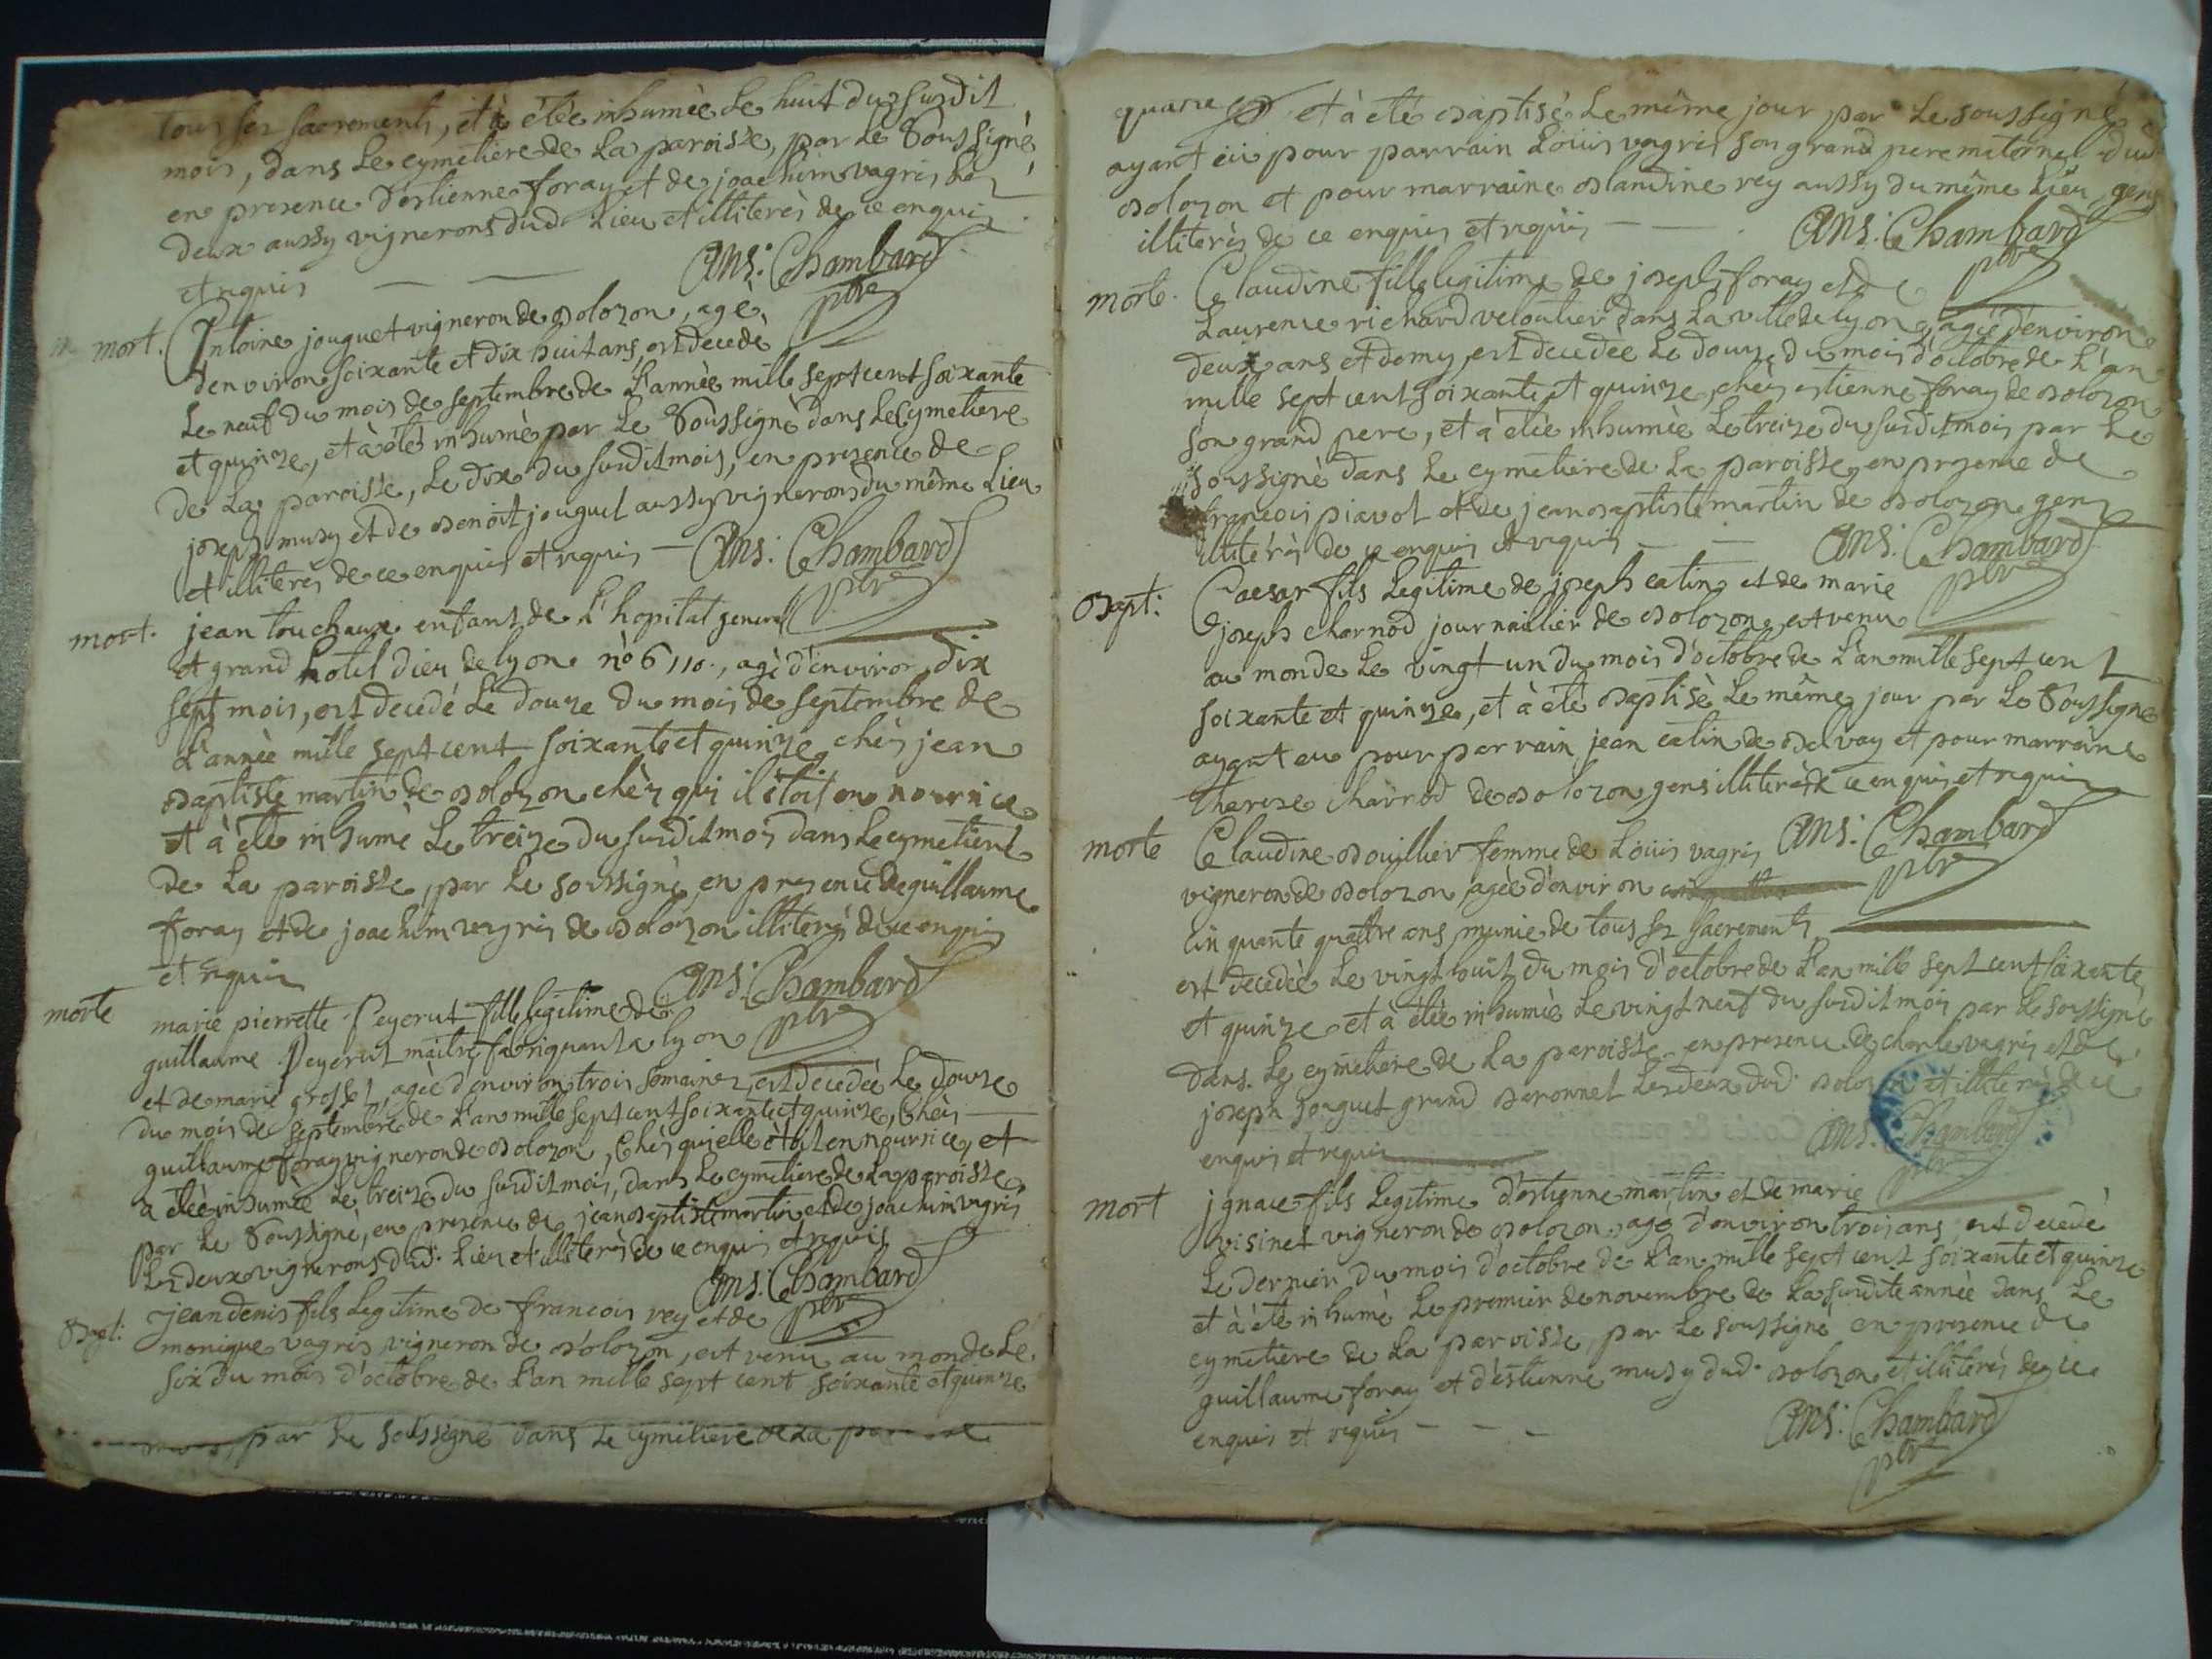 tous ses sacrements, et à étèe inhumèe le huit du susdit
mois, dans le cymetiere de la paroisse, par le soussignè
en presence d'estienne foray et de joachim vagris les
deux aussy vignerons dud. lieu et illiterès de ce enquis
et requis Ans: Chambard ptre
mort. Antoine jouguet vigneron de bolozon, agè
denviron soixante et dix huit ans, est decedè
le neuf du mois de septembre de l'annèe mille sept cent soixante
et quinze, et à étè inhumè par le soussignè dans le cymetiere
de la paroisse, le dix du susdit mois, en presence de
joseph musy et de benoit jouguet aussy vignerons du même lieu
et illiterès de ce enquis et requis — Ans: Chambard ptre
mort. jean touchaux enfant de l'hopital general
et grand hotel dieu de lyon nò 6110., agè d'environ dix
sept mois, est decedé le douze du mois de septembre de
l'annèe mille sept cent soixante et quinze chès jean
baptiste martin de bolozon chèz qui il ètoit en nourrice
et à été inhumè le treize du susdit mois dans le cymetiere
de la paroisse, par le soussignè, en presence de guillaume
foray et de joachim vagris de bolozon illiterès de ce enquis
et requis Ans: Chambard ptre
morte marie pierrette Peyerut fille legitime de
guillaume Peyerut maitre fabriquant a lyon
et de marie grosset, agèe d'environ trois semaines, est decedèe le douze
du mois de septembre de l'an mille sept cent soixante et quinze, chès
guillaume foray vigneron de bolozon, chès qui elle ètoit en nourrice, et
a étèe inhumèe le treize du susdit mois, dans le cymetiere de la paroisse
par le soussignè, en presence de jean baptiste martin et de joachim vagris
les deux vignerons dud. lieu et illiterès de ce enquis et requis
Ans: Chambard ptre
Bapt: jean denis fils legitime de francois rey et de
monique vagris vigneron de bolozon, est venu au monde le
six du mois d'octobre de l'an mille sept cent soixante et quinze
par le soussigné dans le cymetiere de la
quatre et à etè baptisè le même jour par le soussignè
ayant èu pour parrain Loüis vagris son grand pere maternel dud.
bolozon et pour marraine blandine rey aussy du même lieu, gens
illiterès de ce enquis et requis — Ans: Chambard ptre
morte. Claudine fille legitime de joseph foray et de
Laurence richard veloutier dans la ville de lyon, agèe d'environ
deux ans et demy, est decedèe le douze du mois d'octobre de l'an
mille sept cent soixante et quinze, chès estienne foray de bolozon
son grand pere, et à étèe inhumèe le treize du susdit mois par le
soussignè dans le cymetiere de la paroisse, en presence de
francois piavot et de jean baptiste martin de bolozon gens
illitérès de ce enquis et requis — — Ans: Chambard ptre
Bapt: Caesar fils legitime de joseph catin et de marie
joseph charnod journaillier de bolozon, est venu
au monde le vingt un du mois d'octobre de l'an mille sept cent
soixante et quinze, et à été baptisè le même jour par le soussigne
ayant eu pour parrain jean catin de belvay et pour marraine
therese charnod de bolozon gens illiterès de ce enquis et requis
Ans: Chambard ptre
morte Claudine bouillier femme de Loüis vagris
vigneron de bolozon, agèe d'environ
cinquante quattre ans, munie de tous ses sacrements
est decedèe le vingt huit du mois d'octobre de l'an mille sept cent soixante
et quinze et à étèe inhumèe le vingt neuf du susdit mois par le soussignè
dans le cymetiere de la paroisse en presence de charle vagris et de
joseph jouguet grand baronnet les deux dud. bolozon et illiterès de ce
enquis et requis Ans: Chambard ptre
mort jgnace fils legitime d'estienne martin et de marie
visinet vigneron de bolozon, agé d'environ trois ans, est decedé
le dernier du mois d'octobre de l'an mille sept cent soixante et quinze
et à été inhumè le premier de novembre de la susdite annèe dans le
cymetiere de la parroisse, par le soussignè en presence de
guillaume foray et d'estienne musy dud. bolozon et illiterès de ce
enquis et requis — — — Ans: Chambard ptre